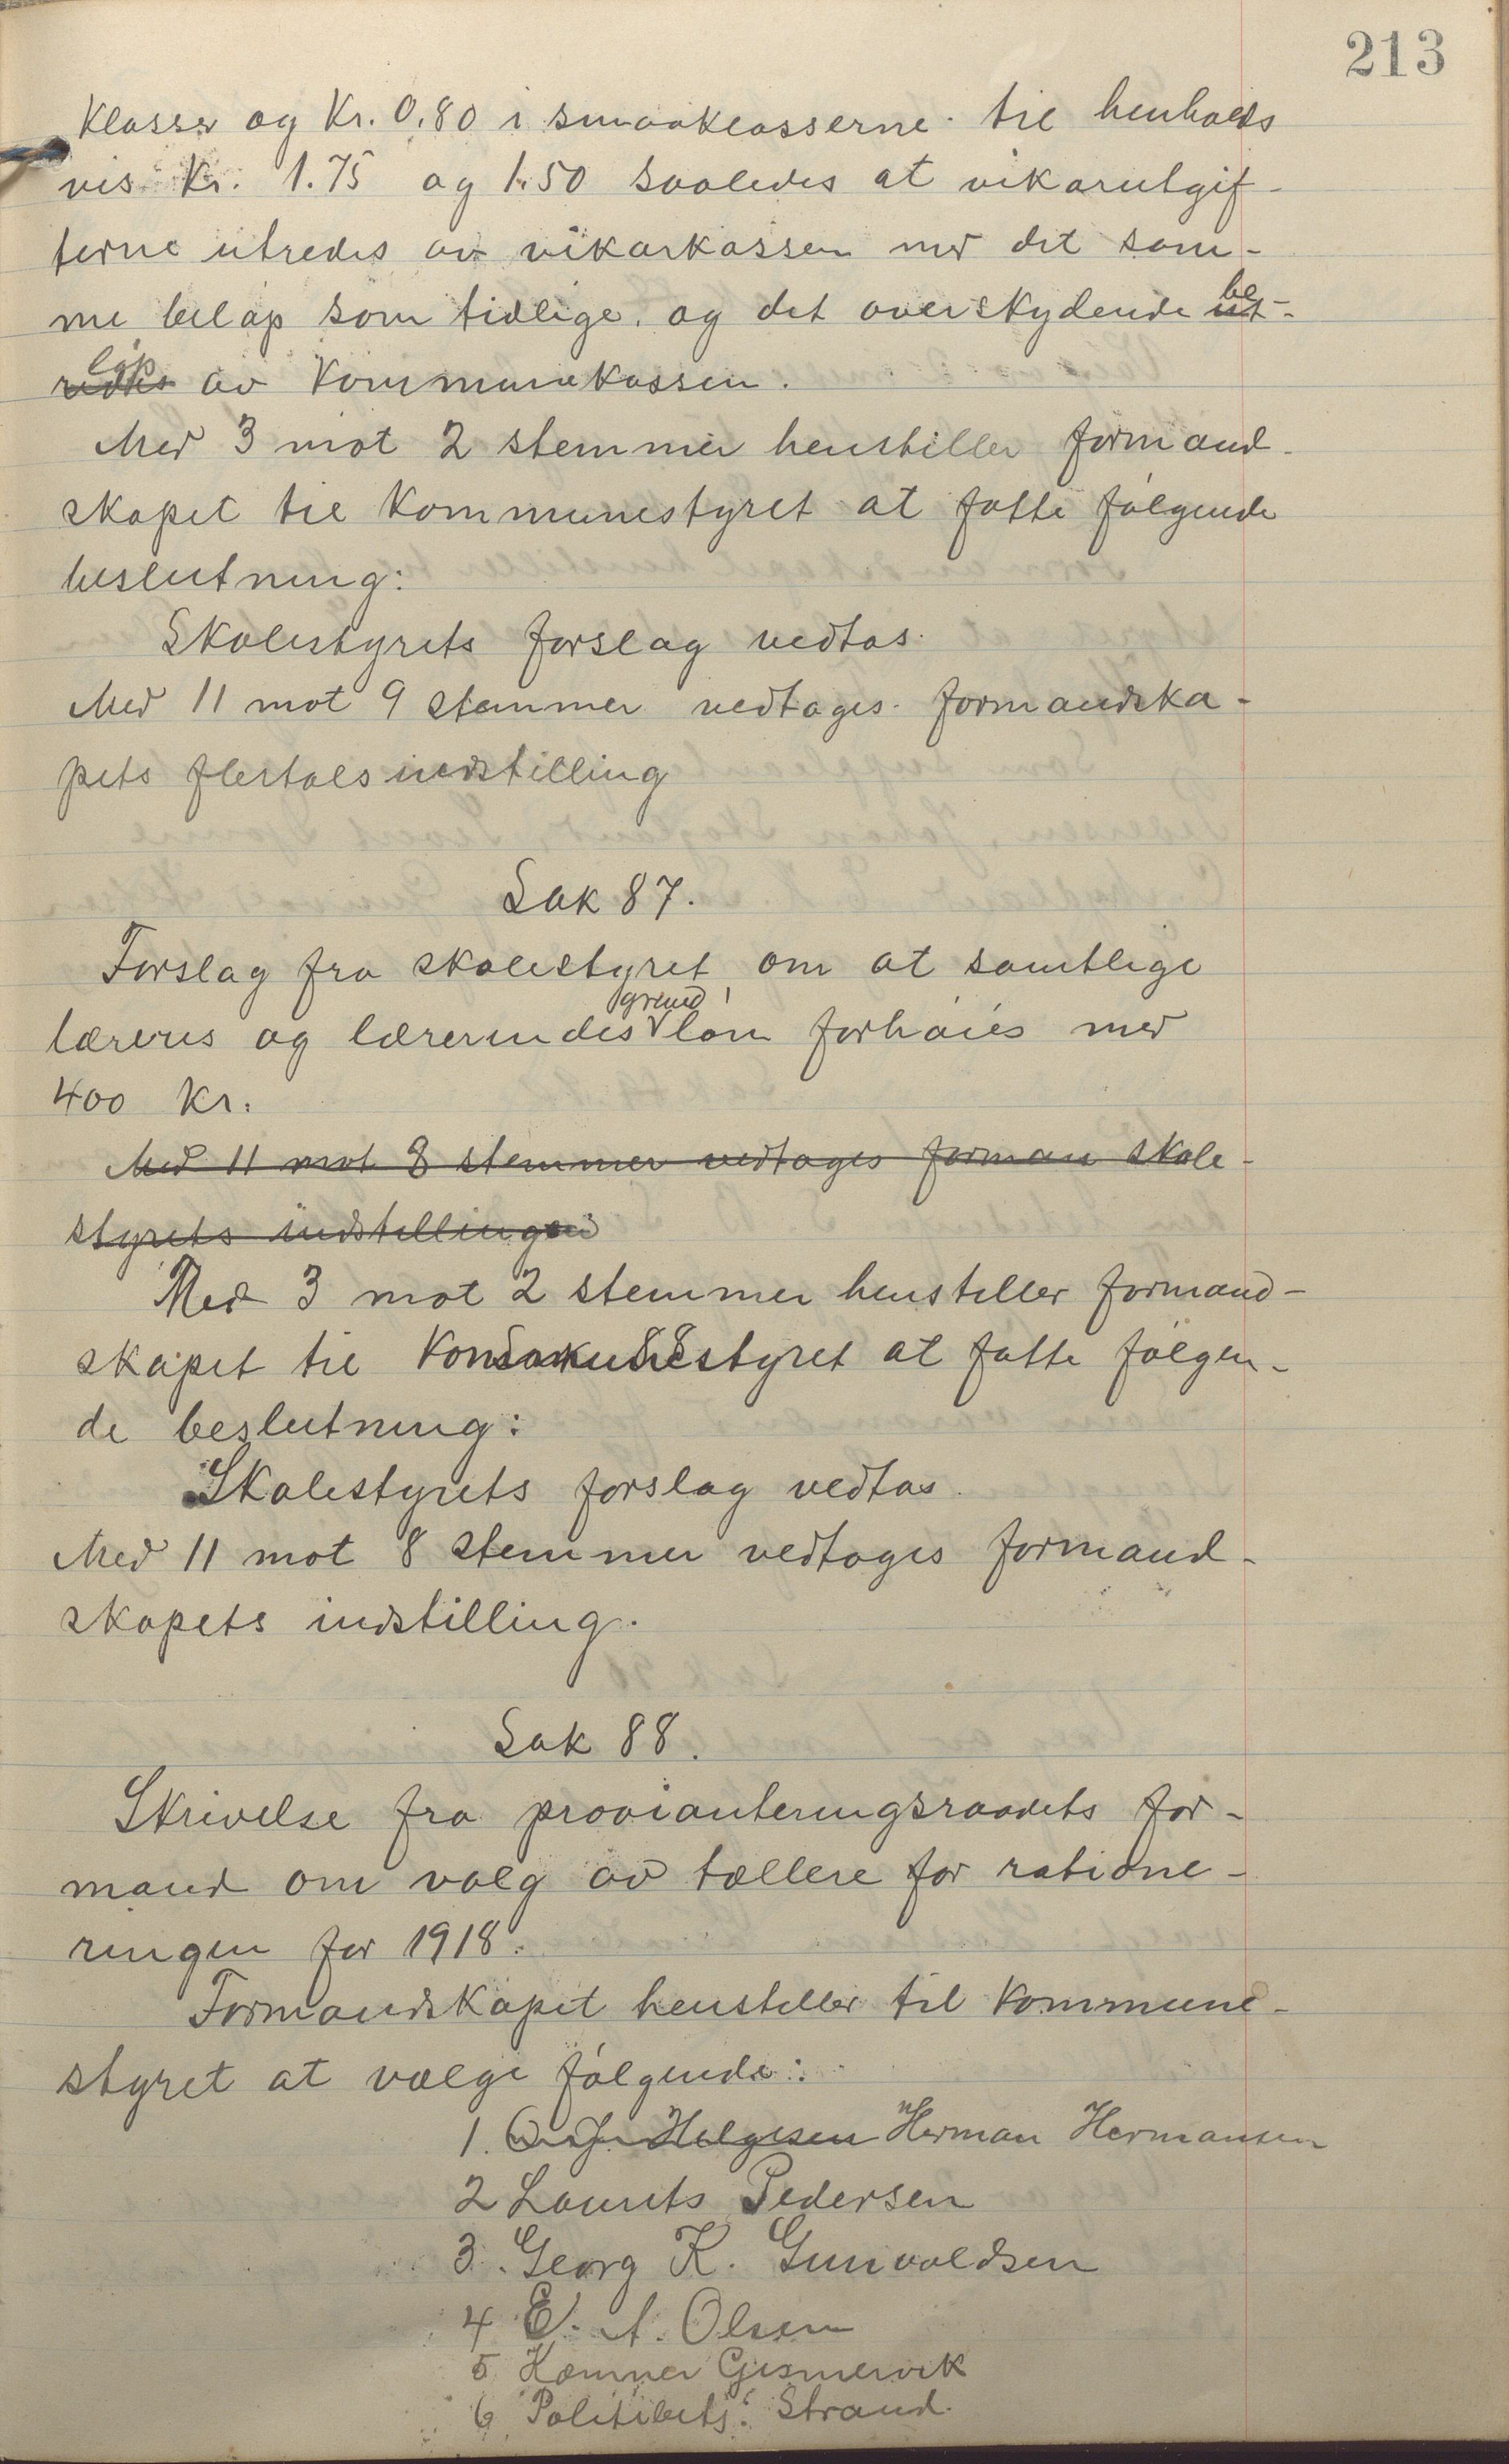 213
Klasser og Kr. 0.80 i smaaklasserne til henholds
vis Kr. 1.75 og 1.50 saaledes at vikarutgif-
terne utredes av vikarkassen med det sam-
me beløp som tidlige. og det overskydende be ut-
løp redes av Kommunekassen.
Med 3 mot 2 stemmer henstiller formand-
skapet til Kommunestyret at fatte følgende
beslutning:
Skolestyrets forslag vedtas.
Med 11 mot 9 stemmer vedtages formandska-
pets flertalsindstilling
Sak 87.
Forslag fra skolestyret, om at samtlige
læreres og lærerindes grund løn forhøies med
400 Kr.
Med 11 mot 8 stemmer vedtages forman skole-
styrets indstillingen
Med 3 mot 2 stemmer henstiller formand-
skapet til Kommunestyret at fatte følgen-
de beslutning:
Skolestyrets forslag vedtas.
Med 11 mot 8 stemmer vedtages formand-
skapets indstilling.
Sak 88.
Skrivelse fra provianteringsraadets for-
mand om valg av tællere for ratione-
ringen for 1918.
Formandskapet henstiller til Kommune-
styret at vælge følgende:
1. Helgesen Herman Hermansen
2 Laurits Pedersen
3. Georg K. Gunvaldsen
4 E. A. Olsen
5 Kæmner Gismervik
6 Politibetj. Strand.